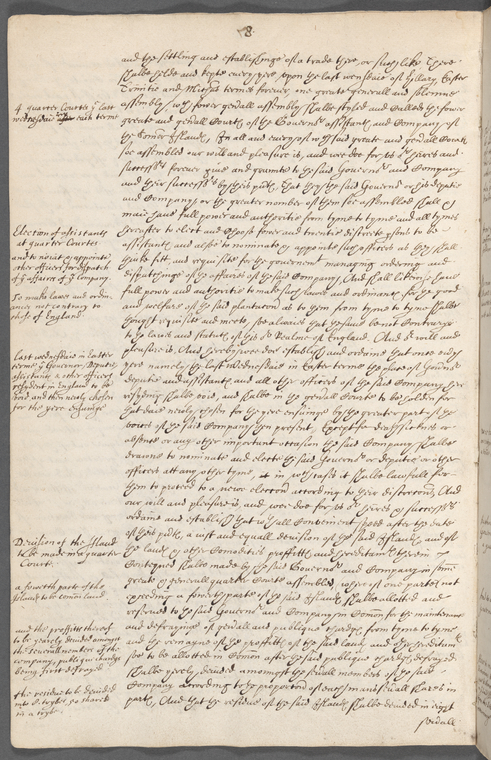 8.
and the settling and establishinge of a trade there, or such like There
shalbe helde and kepte every yere upon the last wensdaie of Hillary Easter
Trinitie and Mich: termes forever, one greate generall and solemne
assembly, wch fower genall assembly shalbe styled and called the fower
greate and genall Courts of the Governor assistants and Company of
the Islands, In all and every of wch said greate and genall Courts
soe assembled our will and pleasure is, and wee doe for us or heires and
successors forever give and graunte to the said Governor and Company
and their successors by these pnts, That they the said Governor or his deputie
and Company or the greater number of them soe assembled shall &
maie have full power and authoritie from tyme to tyme and all tymes
hereafter to elect and chose fower and twentie discrete psons to be
assistants and alsoe to nominate & appointe such officers as they shall
thinke fitt and requisite for the government managing ordering and
dispatching of the affaires of the said Company, And shall likewise have
full power and authoritie to make such lawes and ordinants for the good
and welfare of the said plantacon as to them from tyme to tyme shalbe
thought requisite and meete, soe alwaies that the same be not Contrarye
to the lawes and statuts of this or Realme of England. And or will and
pleasure is, And hereby wee doe establish and ordaine that once every
yere namely the last Wednesdaie in Easter terme the places of Governor
deputie and assistants and all other officers of the said Company here
residing shalbe void, and shalbe in the genall Courte to be holden for
that daie newly chosen for the yere ensuinge by the greater part of the
voices of the said Company then present, Except for
absence or any other important occasion the said Company shalbe
drawne to nominate and electe the said Governor or deputie or other
officers att any other tyme, in wch case it shalbe lawfull for
them to proceed to a newe election according to their discretions, And
our will and pleasure is, and wee doe for us or heires & successors
ordaine and establish that wth all Convenient speed after the date
of theis pnts, a iust and equall devision of the said Islands, and of
the lands & other Comodities proffitts and hereditamts therein
Conteyned shalbe made by the said Governor and Company in some
greate & generall quarter Courte assembled, whereof one parte not
exceeding a fowerth parte of the said Islands shalbe allotted and
reserved to the said Governor and Company in Comon for the maintenance
and defrayinge of genall and publique charges from tyme to tyme
and the remayne of the proffitts of the said lands and hereditamts
soe to be allotted in Comon after the said publique charges defrayed
shalbe yerely devided amongst the severall members of the said
Company according to the proportion of each mans severall shares in
parts, And that the residue of the said Islands shalbe devided in eight
severall
4 quarter Courtes ye last
wednesdaie each terme
Election of assistants
at quarter Courtes
and to nomit or appointe
other officers for dispatch
of ye affaires of ye Company
To make lawes and ordin:
ance not contrary to
those of England
Last wednesdaie in Easter
terme ye Governor, Deputie
assistants & other officers
resident in England to be
void and then newly chosen
for the yere ensuinge
Devision of the Island
to be made in a quarter
Courte
a fowerth parte of the
Islands to be comon land.
and the proffitts thereof
to be yearely devided amongst
the severall members of the
company, publique charges
being first defrayed
the residue to be devided
into 8. trybes, 50 shares
in a trybe.